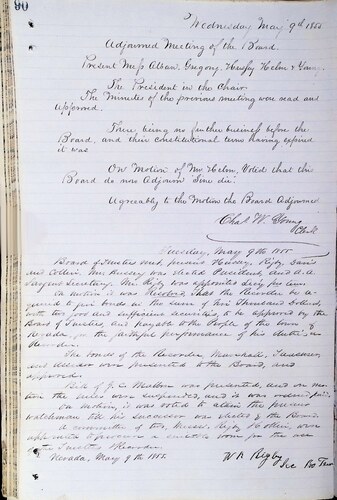 90
Wednesday May 9th 1855
Adjourned Meeting of the Board.
Present Messrs Alban, Gregory, Hussey Helm & Young.
The President in the Chair
The Minutes of the previous meeting were read and
approved.
There being no further business before the
Board, and their constitutional term having expired
it was
On Motion of Mr Helm, Voted that this
Board do now Adjourn Sine die.
Agreeably to the Motion the Board Adjourned
Chas W. Young
Clerk
Tuesday, May 9th 1855.
Board of Trustees met, present Hussey, Rigby, Davis
and Collin. Mr. Hussey was elected President, and A.A.
Sargent Secretary. Mr. Rigby was appointed Secy pro tem.
On motion it was Resolved That the Recorder be re-
quired to give bonds in the sum of Five Thousand Dollars,
with two good and sufficient securities, to be approved by the
Board of Trustees, and payable to the People of the town of
Nevada, for the faithful performance of his duties as
Recorder.
The bonds of the Recorder, Marshall, Treasurer,
and Assessor were presented to the Board, and
approved.
Bill of J. C. was presented, and on mo-
tion the rules were suspended, and it was ordered paid.
On motion, it was voted to retain the present
watchman till his successor was elected by the Board.
A committee of two, Messrs. Rigby & Collin, were
appointed to procure a suitable room for the use
of the Trustees & Recorder.
Nevada, May 9th 1855.
W. P. Rigby
Sec Pro Tem